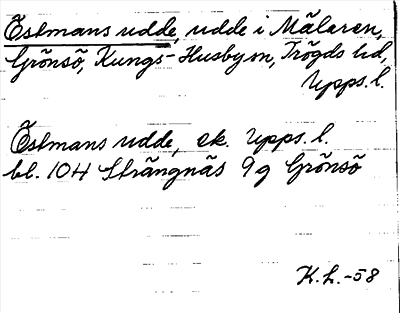 Östmans udde, udde i Mälaren,
Grönsö, Kungs-Husby sn, Trögds hd,
Upps. l.
Östmans udde, ek. Upps. l.
bl. 104 Strängnäs 9g Grönsö
K.h.-58